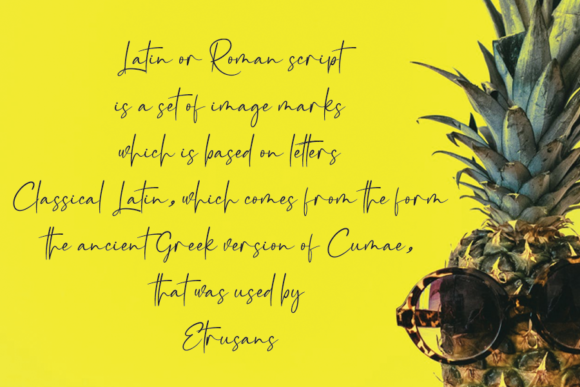 Latin or Roman script
is a set of image marks
which is based on letters
Classical Latin, which comes from the form
the ancient Greek version of Cumae,
that was used by
Etrusans